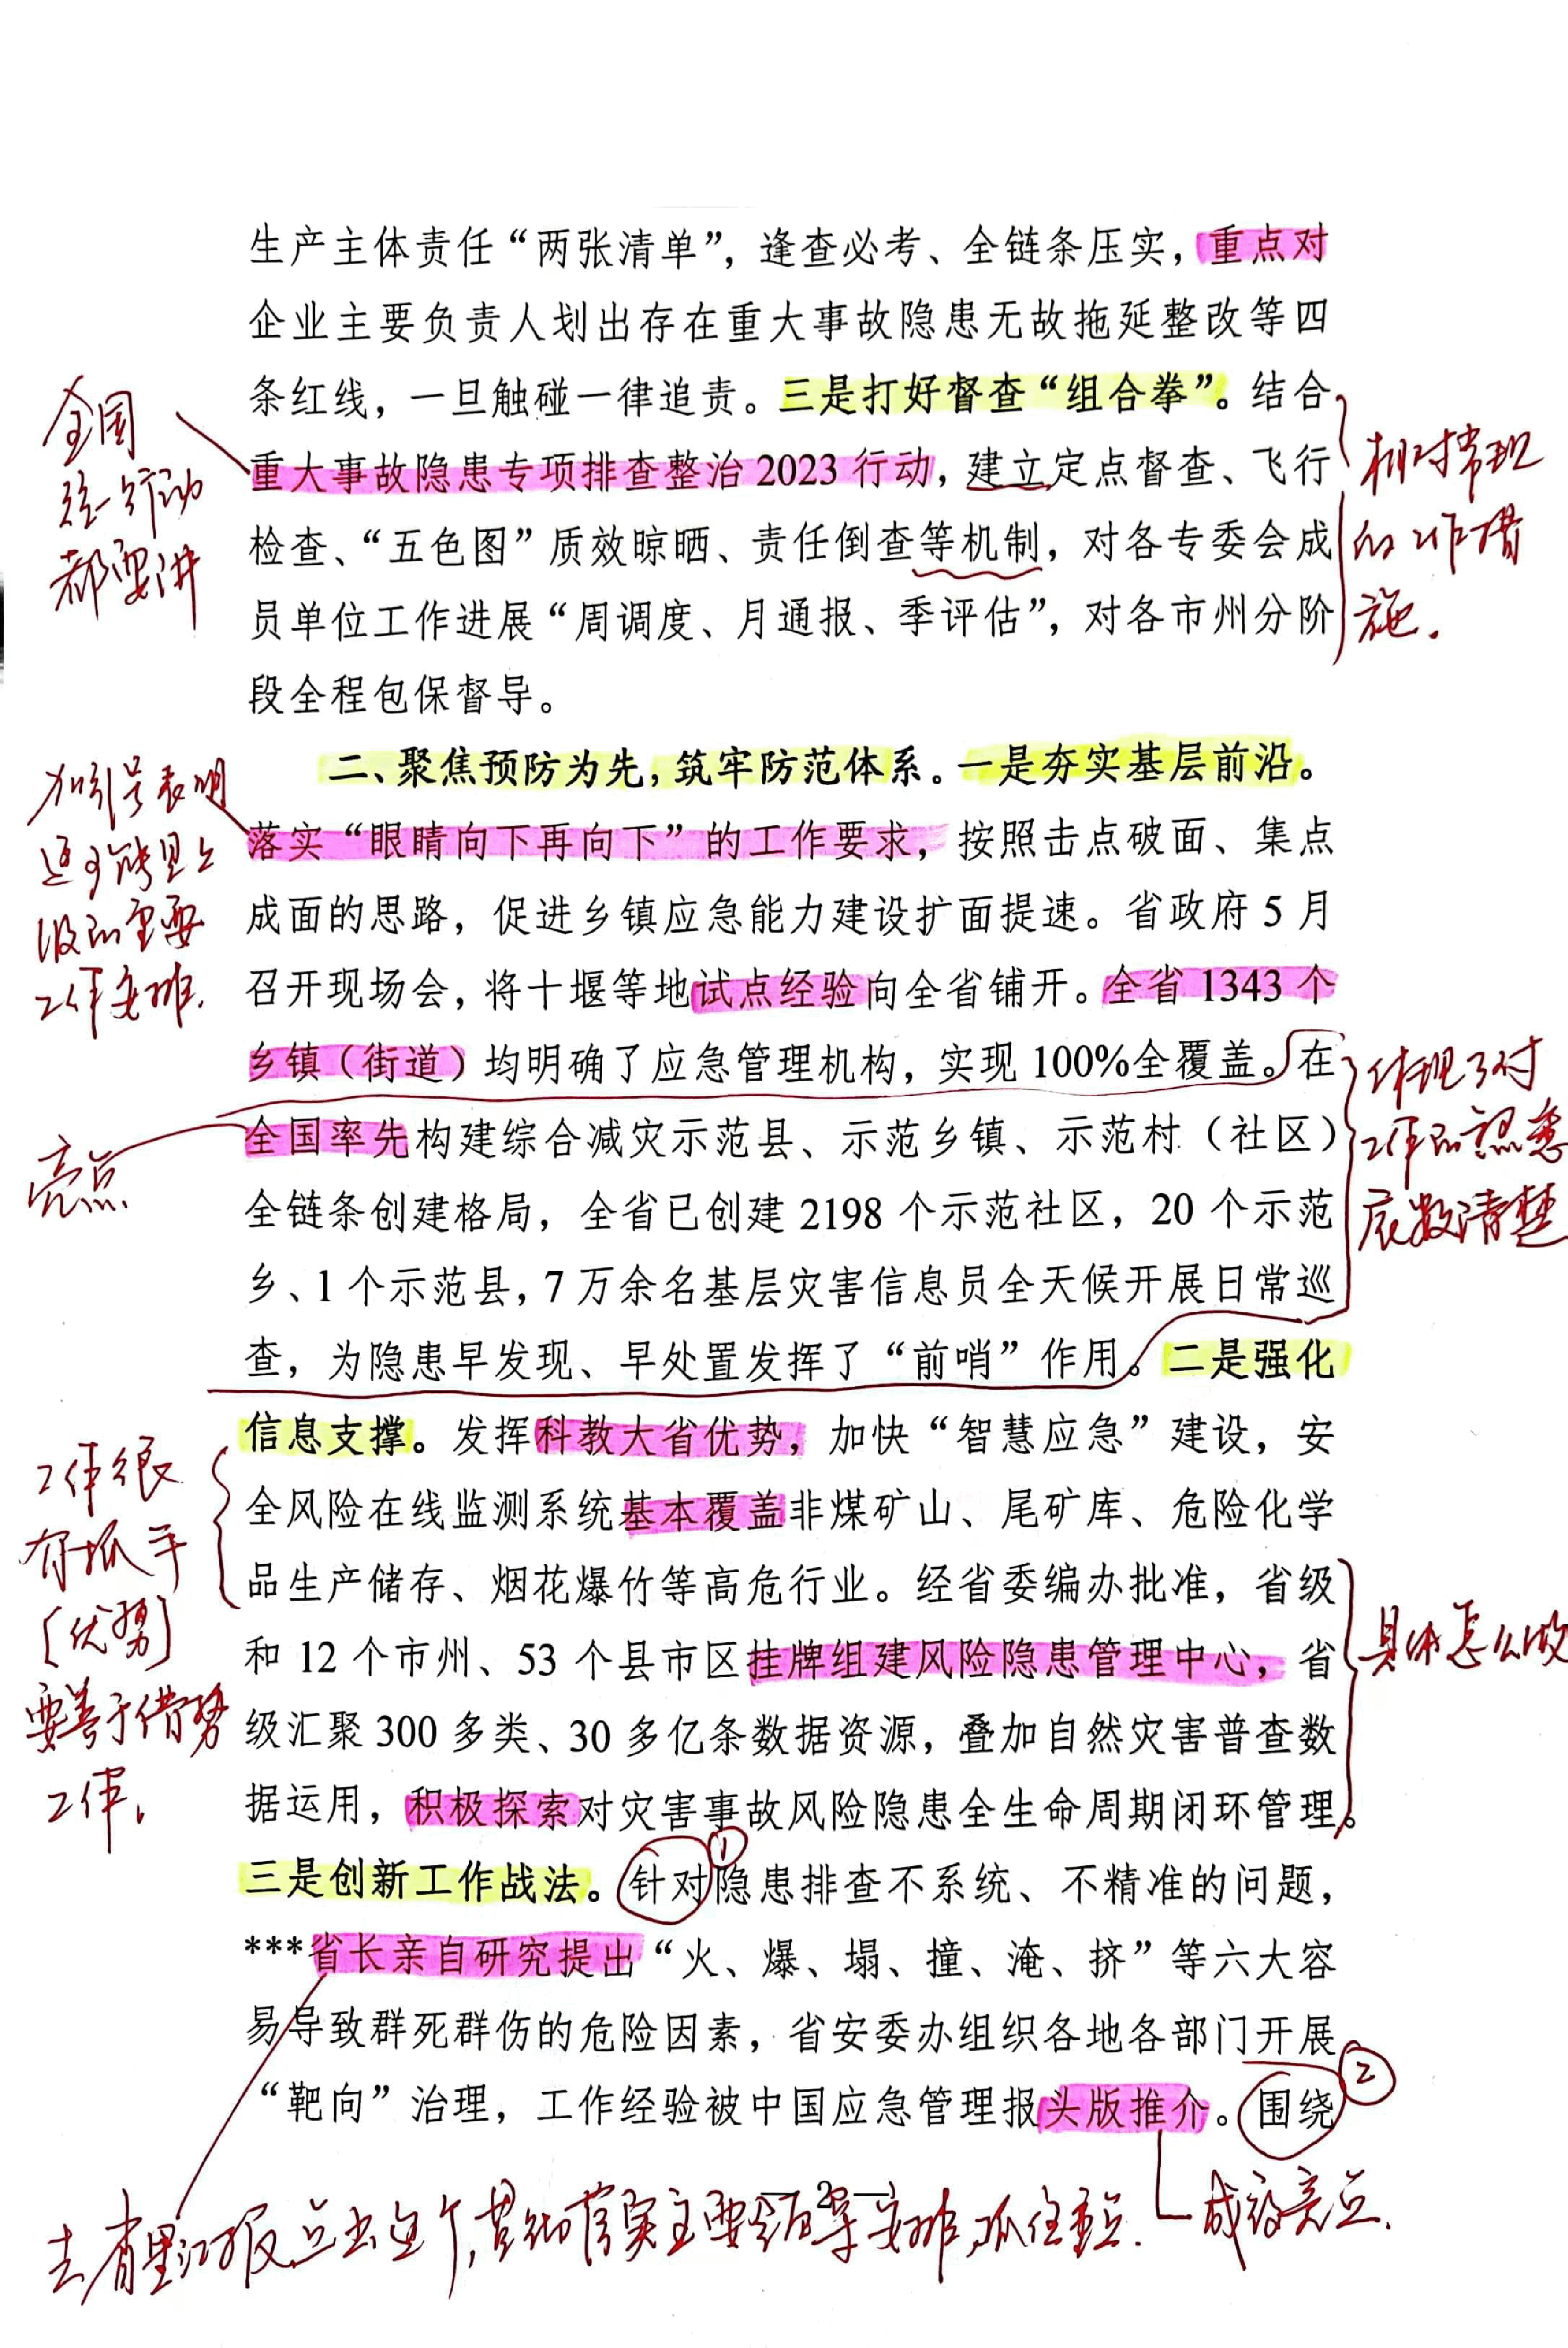 生产主体责任“两张清单”，逢查必考、全链条压实，重点对
企业主要负责人划出存在重大事故隐患无故拖延整改等四
条红线，一旦触碰一律追责。三是打好督查“组合拳”。结合
重大事故隐患专项排查整治 2023 行动，建立定点督查、飞行
检查、“五色图”质效晾晒、责任倒查等机制，对各专委会成
员单位工作进展“周调度、月通报、季评估”，对各市州分阶
段全程包保督导。
全国
统一行动
都要讲
相对常规
的工作措
施.
二、聚焦预防为先，筑牢防范体系。一是夯实基层前沿。
落实“眼睛向下再向下”的工作要求，按照击点破面、集点
成面的思路，促进乡镇应急能力建设扩面提速。省政府 5 月
召开现场会，将十堰等地试点经验向全省铺开。全省 1343 个
乡镇（街道）均明确了应急管理机构，实现 100%全覆盖。在
全国率先构建综合减灾示范县、示范乡镇、示范村（社区）
全链条创建格局，全省已创建 2198 个示范社区，20 个示范
乡、1 个示范县，7 万余名基层灾害信息员全天候开展日常巡
查，为隐患早发现、早处置发挥了“前哨”作用。二是强化
信息支撑。发挥科教大省优势，加快“智慧应急”建设，安
全风险在线监测系统基本覆盖非煤矿山、尾矿库、危险化学
品生产储存、烟花爆竹等高危行业。经省委编办批准，省级
和 12 个市州、53 个县市区挂牌组建风险隐患管理中心，省
级汇聚 300 多类、30 多亿条数据资源，叠加自然灾害普查数
据运用，积极探索对灾害事故风险隐患全生命周期闭环管理。
三是创新工作战法。针对隐患排查不系统、不精准的问题，
***省长亲自研究提出“火、爆、塌、撞、淹、挤”等六大容
易导致群死群伤的危险因素，省安委办组织各地各部门开展
“靶向”治理，工作经验被中国应急管理报头版推介。围绕
加引号表明
这可能是上
级的重要
工作安排.
亮点
体现了对
工作的熟悉
底数清楚
工作很
有抓手
(优势)
要善于借势
工作.
具体怎么做
①
②
— 2 —
去省里汇报点出这个,贯彻落实主要领导安排,抓住重点.
成效亮点.